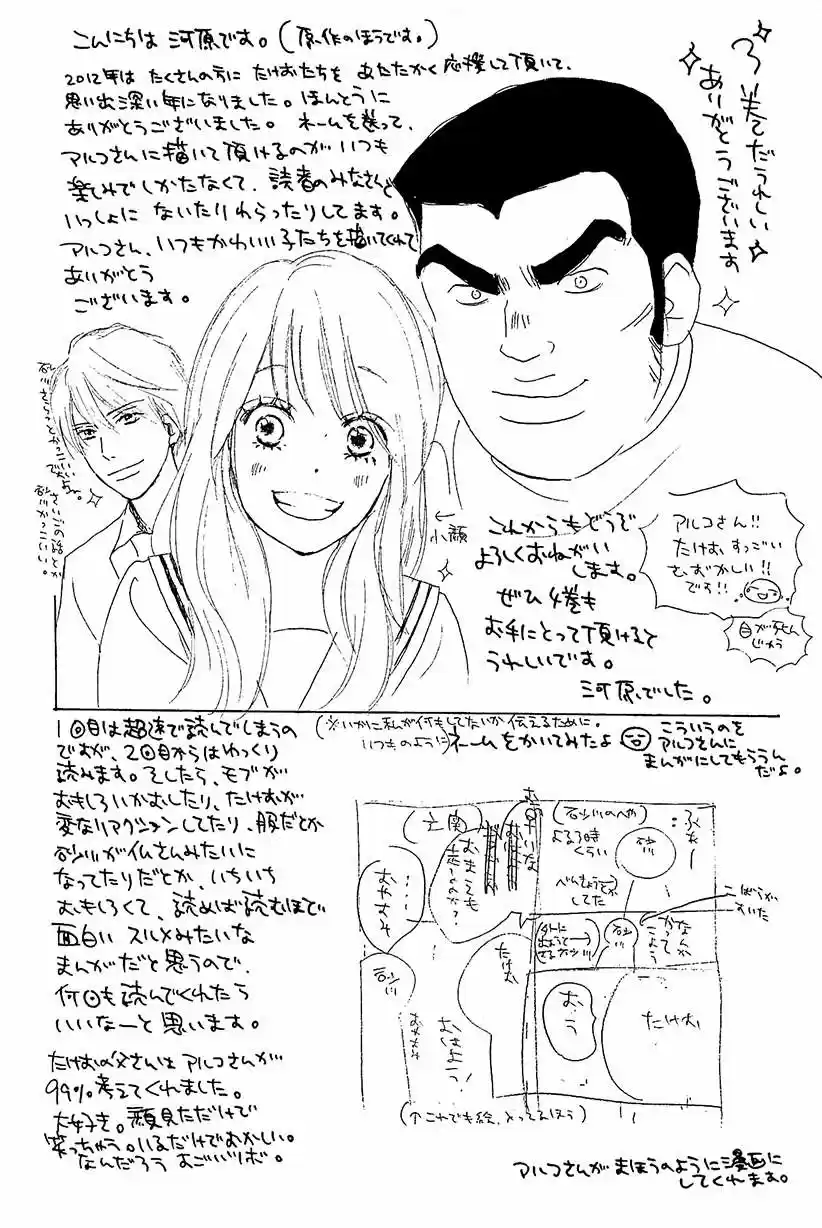 こんにちは 河原です。(原作のほうです。)
2012年は たくさんの方に たけおたちを あたたかく応援して頂いて、
思い出深い年になりました。ほんとうに
ありがとうございました。 ネームを送って、
アルコさんに描いて頂けるのが いつも
楽しみでしかたなくて、読者のみなさんと
いっしょに ないたりわらったりしてます。
アルコさん、いつもかわいい子たちを描いてくれて
ありがとう
ございます。
3巻でだうれしい
ありがとうございます
←
小顔
これからもどうぞ
よろしくおねがい
します。
ぜひ 4巻も
お手にとって頂けると
うれしいです。
河原でした。
アルコさん!!
たけお すっごい
むずかしい!!
です!!
1回目は超速で読んでしまうの
ですが、2回目からはゆっくり
読みます。そしたら、モブが
おもしろいかおしたり、たけおが
変なリアクションしてたり、服だとか
砂川が仏さんみたいに
なってたりだとか、いちいち
おもしろくて、読めば読むほど
面白い スルメみたいな
まんがだと思うので、
何回も読んでくれたら
いいなーと思います。
たけおの父さんは アルコさんが
99%考えてくれました。
大好き。顔見ただけで
笑っちゃう。いるだけでおかしい。
なんだろう
(※いかに私が何もしてないか伝えるために。
いつものように)ネームをかいてみたよ
こういうのを
アルコさんに
まんがにしてもらうん
だよ。
ふわー
砂川
(砂川のへや)
よる9時
くらい
べんきょうとか
してた
こばらが
すいた
なんか
かって
こよう
砂川
たけお
おう
(玄関)
おまえも
おやすみ
砂川
たけお
おはよう!
(↑これでも絵、入ってるほう)
アルコさんが まほうのように漫画に
してくれます。